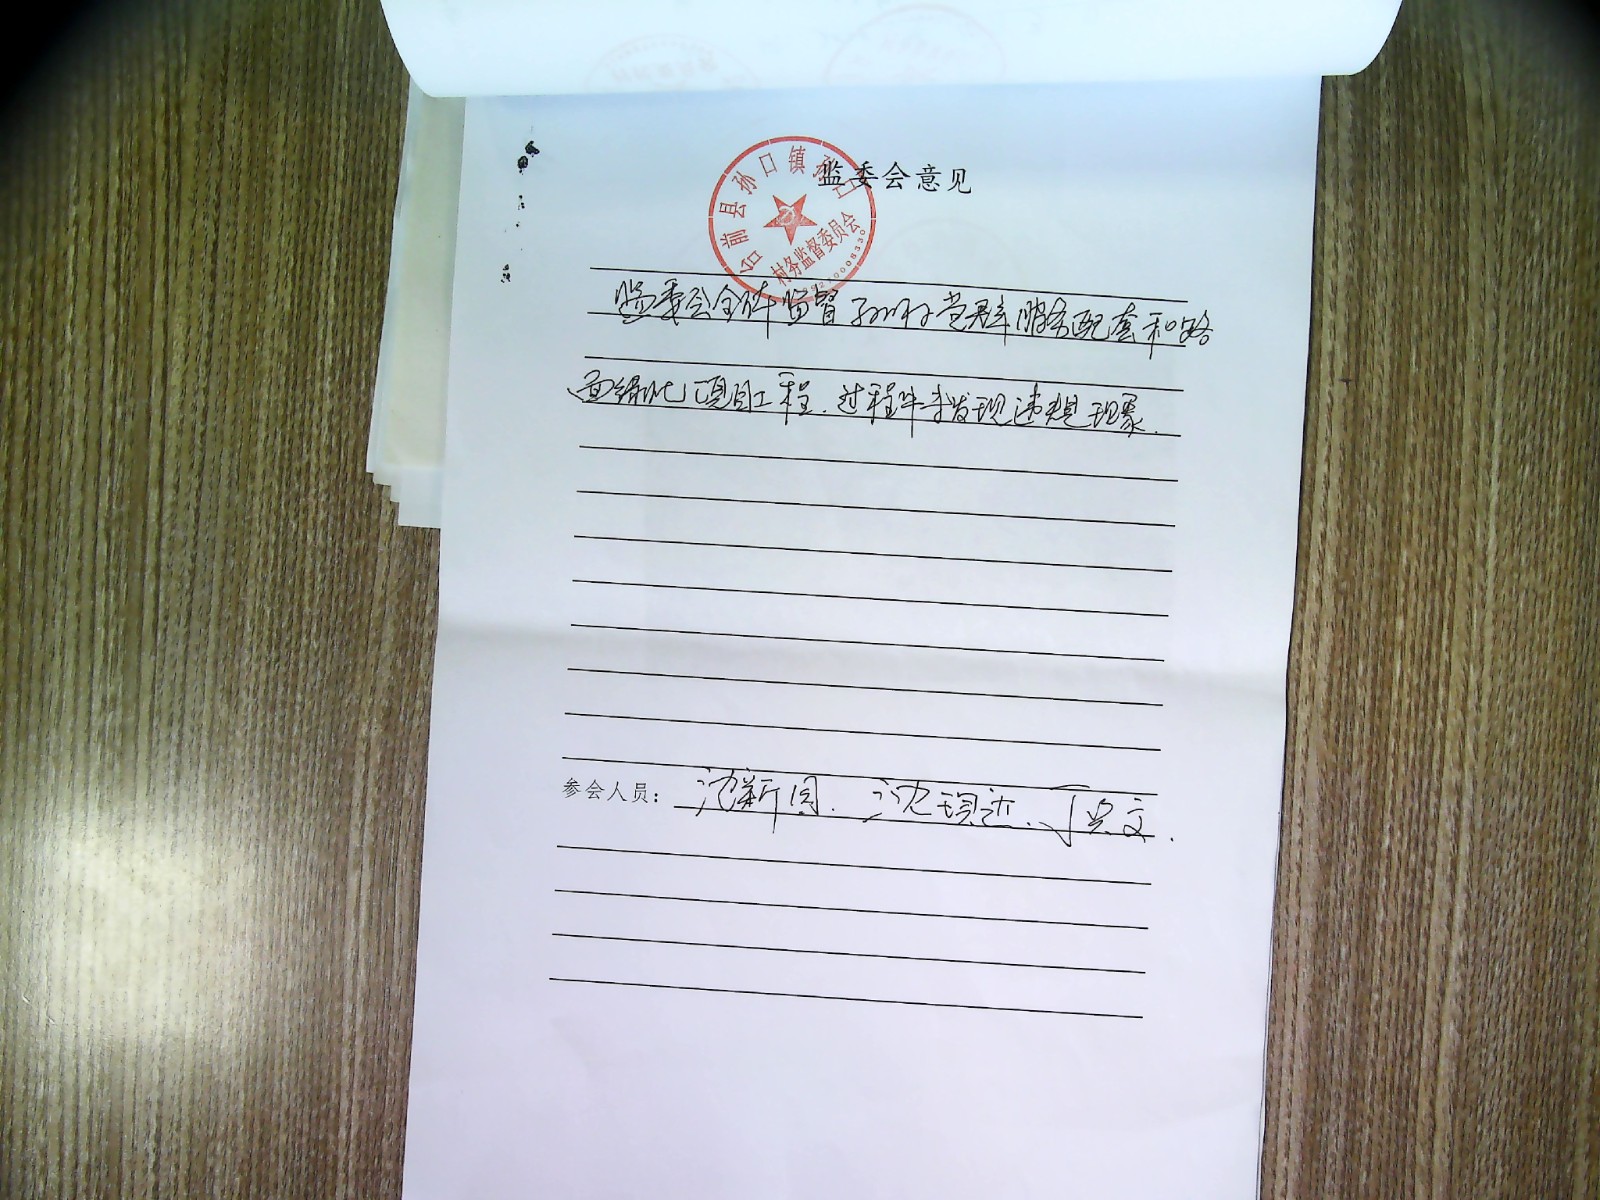 监委会意见
台前县孙口镇孙口
村务监督委员会
监委会全体监督孙口村党群服务配套和路
面绿化项目工程。过程中未发现违规现象。
参会人员：沈新同、沈现进、丁兴文。